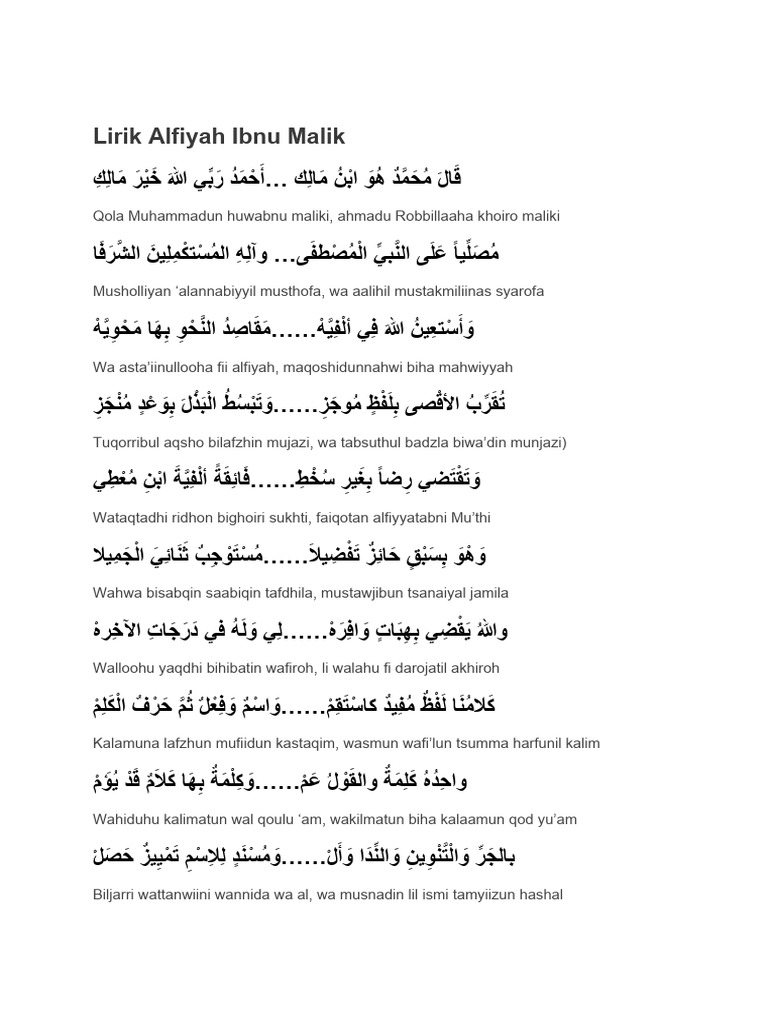 Lirik Alfiyah Ibnu Malik
قَالَ مُحَمَّدٌ هُوَ ابْنُ مَالِك …أَحْمَدُ رَبِّي اللهَ خَيْرَ مَالِكِ
Qola Muhammadun huwabnu maliki, ahmadu Robbillaaha khoiro maliki
مُصَلِّياً عَلَى النَّبيِّ الْمُصْطفَى … وآلِهِ المُسْتكْمِلِينَ الشَّرَفَا
Musholliyan ‘alannabiyyil musthofa, wa aalihil mustakmiliinas syarofa
وَأَسْتعِينُ اللهَ فِي ألْفِيَّهْ……مَقَاصِدُ النَّحْوِ بِهَا مَحْوِيَّهْ
Wa asta’iinullooha fii alfiyah, maqoshidunnahwi biha mahwiyyah
تُقَرِّبُ الأقْصى بِلَفْظٍ مُوجَزِ……وَتَبْسُطُ الْبَذْلَ بِوَعْدٍ مُنْجَزِ
Tuqorribul aqsho bilafzhin mujazi, wa tabsuthul badzla biwa’din munjazi)
وَتَقْتَضي رِضاً بِغَيرِ سُخْطِ……فَائِقَةً ألْفِيَّةَ ابْنِ مُعْطِي
Wataqtadhi ridhon bighoiri sukhti, faiqotan alfiyyatabni Mu’thi
وَهْوَ بِسَبْقٍ حَائِزٌ تَفْضِيلاَ……مُسْتَوْجِبٌ ثَنَائِيَ الْجَمِيلا
Wahwa bisabqin saabiqin tafdhila, mustawjibun tsanaiyal jamila
واللهُ يَقْضِي بِهِبَاتٍ وَافِرَهْ……لِي وَلَهُ في دَرَجَاتِ الآخِرهْ
Walloohu yaqdhi bihibatin wafiroh, li walahu fi darojatil akhiroh
كَلامُنَا لَفْظٌ مُفِيدٌ كاسْتَقِمْ……وَاسْمٌ وَفِعْلٌ ثُمَّ حَرْفٌ الْكَلِمْ
Kalamuna lafzhun mufiidun kastaqim, wasmun wafi’lun tsumma harfunil kalim
واحِدُهُ كَلِمَةٌ والقَوْلُ عَمْ……وَكِلْمَةٌ بِهَا كَلاَمٌ قَدْ يُؤَمْ
Wahiduhu kalimatun wal qoulu ‘am, wakilmatun biha kalaamun qod yu’am
بالجَرِّ وَالْتَّنْوِينِ وَالنِّدَا وَأَلْ……وَمُسْنَدٍ لِلاِسْمِ تَمْيِيزٌ حَصَلْ
Biljarri wattanwiini wannida wa al, wa musnadin lil ismi tamyiizun hashal